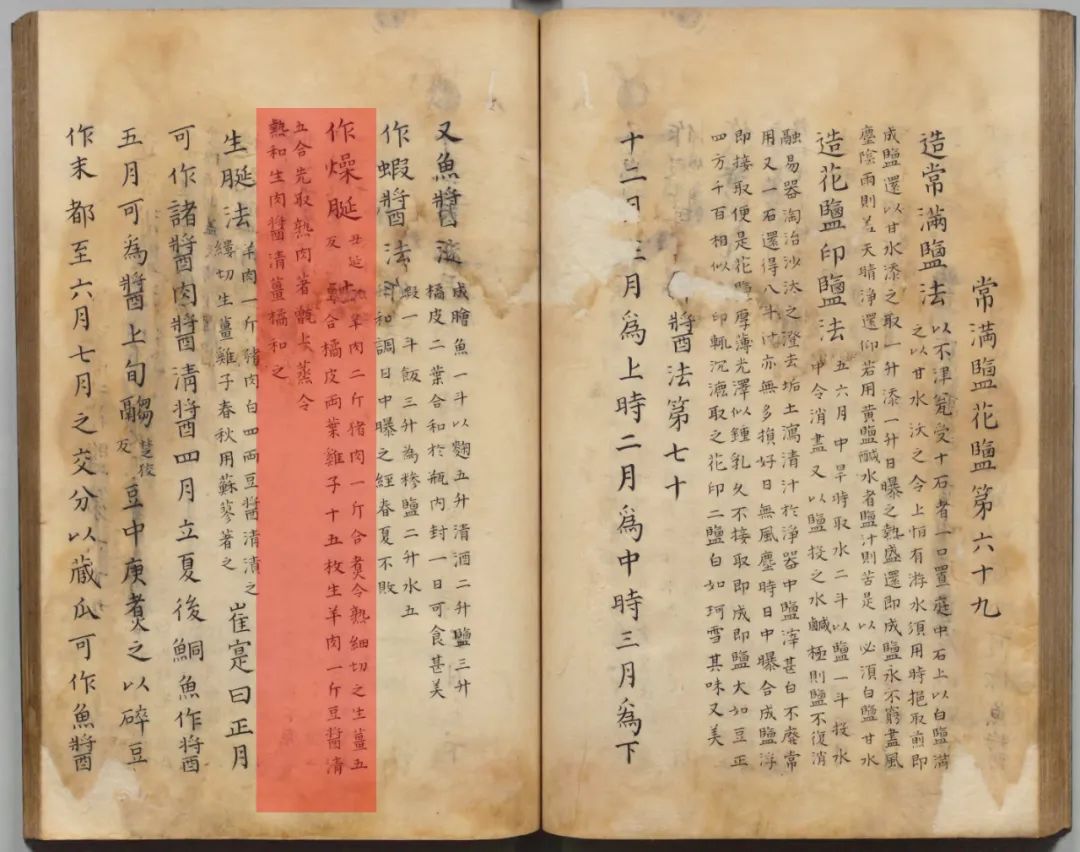 常滿鹽花鹽第六十九
造常滿鹽法以不津甕受十石者一口置庭中石上以白鹽滿
之以甘水沃之令上恒有游水須用時挹取煎即
成鹽還以甘水添之取一升添一升日曝之熱盛還即成鹽永不窮盡風
塵陰雨則盖天晴淨還仰若用黃鹽鹹水者鹽汁則苦是以必須白鹽甘水
造花鹽印鹽法五六月中旱時取水二斗以鹽一斗投水
中令消盡又以鹽投之水鹹極則鹽不復消
融易器淘治沙汰之澄去垢土瀉清汁於淨器中鹽滓甚白不廢常
用又一石還得八斗汁亦無多損好日無風塵時日中曝合成鹽浮
即接取便是花鹽厚薄光澤似鍾乳久不接取即成即鹽大如豆正
四方千百相似印輒沉漉取之花印二鹽白如珂雪其味又美
醬法第七十
十二月三月爲上時二月爲中時三月爲下
又魚醬法成膾魚一斗以麴五升清酒二升鹽三升
橘皮二葉合和於瓶內封一日可食甚美
作蝦醬法蝦一斗飯三升為糝鹽二升水五
和調日中曝之經春夏不敗
作燥脡丑延反羊肉二斤猪肉一斤合煑令熟細切之生薑五
合橘皮兩葉雞子十五枚生羊肉一斤豆醬清
五合先取熟肉著甑上蒸令
熱和生肉醬清薑橘和之
生脡法羊肉一斤豬肉白四兩豆醬清漬之
縷切生薑雞子春秋用蘇蓼著之
崔寔曰正月
可作諸醬肉醬清醬四月立夏後鮦魚作醬
五月可為醬上旬䴬楚狡反豆中庚煑之以碎豆
作末都至六月七月之交分以藏瓜可作魚醬